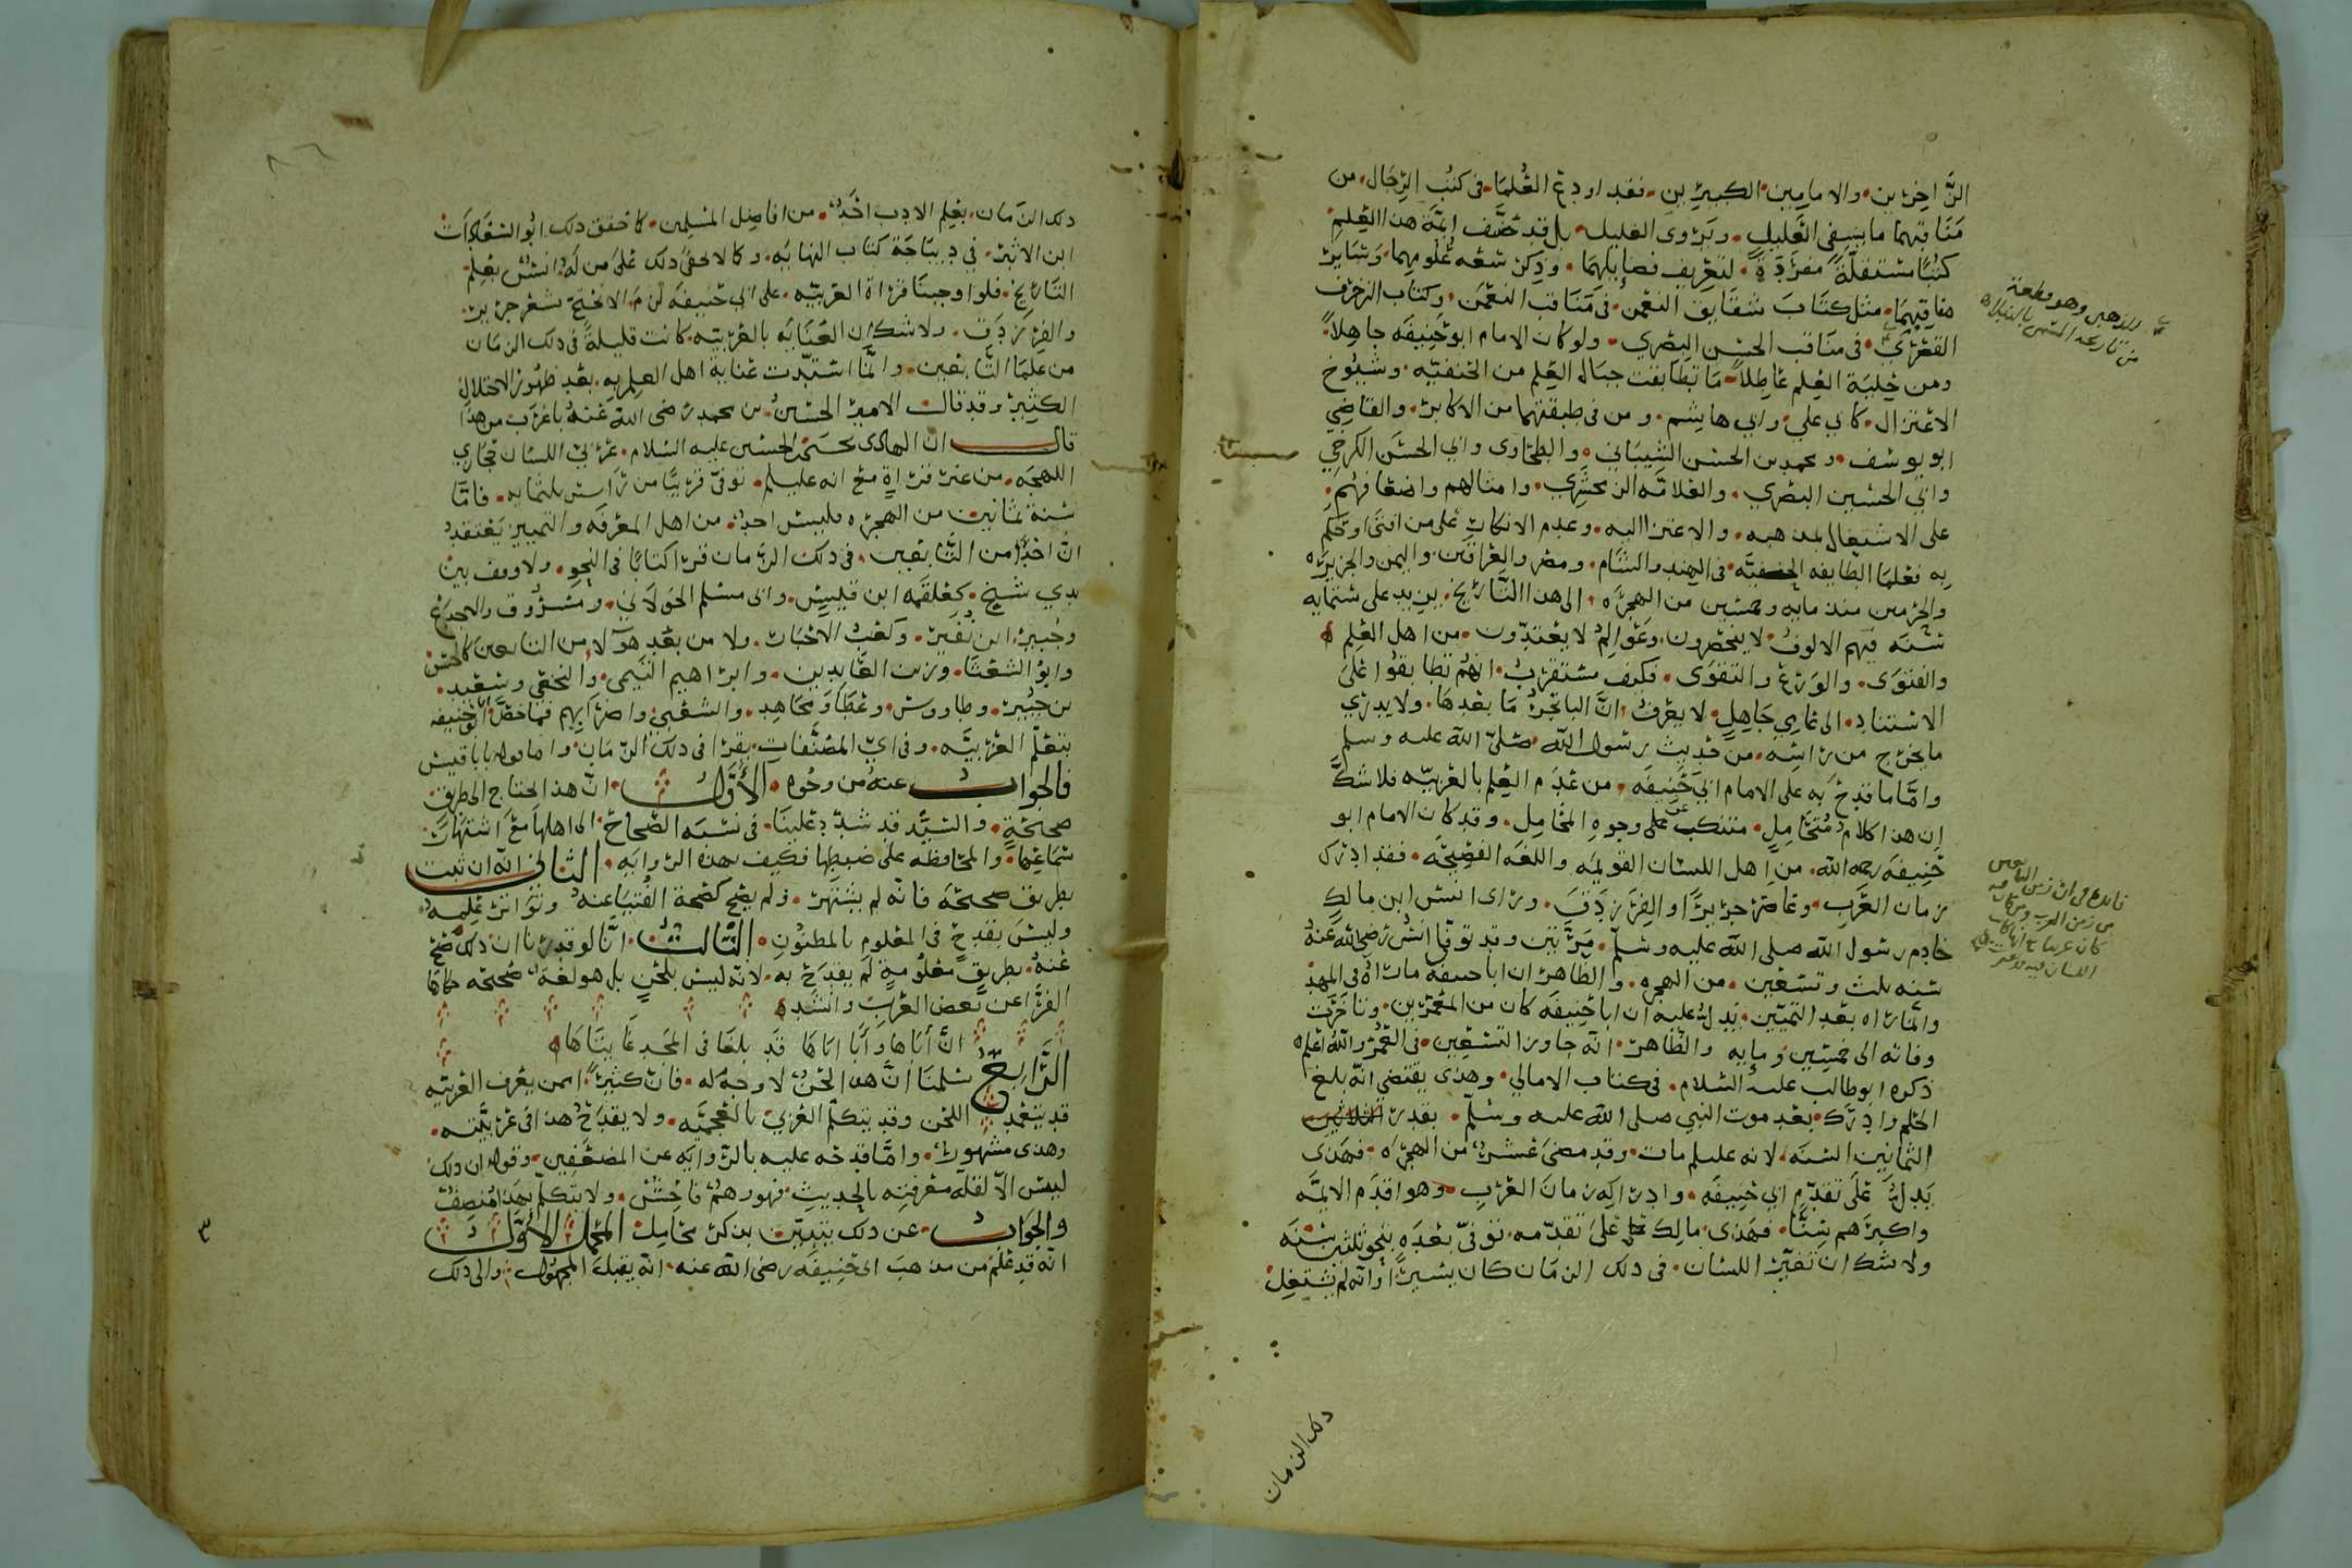 الزَّاخِرَين، والامامين الكبيرين، فقد اودع العُلما في كتب الرجال، من
مَنَاقبهما ما يشفي العَليل، ويَروى الغليل، بل قد صَنَّف ائمّة هذا العِلم
كتُبًا مستقلّةً مفرَدَةً، لتعريف فضايلهِمَا، وذِكر سَعَه عُلُومِهما، وسَايِر
مناقبهمَا، مثل كتَابَ شقايق النعمن، في مَنَاقب النعمن، وكتاب الزخرف
القصْري، في مناقب الحسَن البصْري، ولو كان الامام ابو حَنِيفَه جاهِلاً،
ومن حِليَة العِلم عَاطِلاً، مَا تطَابَقت جبَال العِلم من الحنفيّه، وشيُوخ
الاعْتزال، كابي علي، وابي هاشم، ومن في طبقتهما من الاكابر، والقاضِي
ابو يوسُف، ومحمد بن الحسَن الشيبَاني، والطحَاوى وابي الحسَن الكرخي
وابي الحسين البصْري، والعَلامَه الزمخشَري، وامثالهم واضعَافهُم،
على الاشتِغال بمذهبه، والاعتزا اليه، وعدم الانكار على من افتى او حكم
به فعُلما الطايفه الحنفيّه في الهِند والشَام، ومصْر والعِراقَين، واليمن والجزيرَه
والحرَمين منذ مايه وخمسين من الهجرَه، الى هذا التَاريخ، يزيد على ستمايه
سَنَه فهم الالوفُ لا ينحَصرون، وعَوَالِمُ لا يعْتدّون، من اهل العِلم
والفتوَى، والوَرَع والتقوَى، فكيف يستقربُ، انهُم تطَابقُوا عَلى
الاسْتنادِ، الى عَامِي جَاهِلٍ، لا يعْرفُ، انَّ البا تجرُّ مَا بعْدهَا، ولا يدْري
ما يخرج من رَاسِه، من حَديث رسُول الله، صَلىّ الله عليه وسلم
وامَّا ما قدحَ به على الامام ابي حَنِيفَه، من عَدَم العِلم بالعَربيّه فلا شكَّ
ان هذا كلام مُتحَامِلٍ، متنكب عن على وجوهِ المحَامِل، وقد كان الامام ابو
حَنِيفَه رحمه الله، من اهل اللسَان القويمَه واللغَه الفصِيحَه، فقد ادرَك
زمان العَرَبِ، وعَاصَر جريرًا والفرَزدَقَ، وراى انسَ ابن مالكٍ
خادم رسُول الله صلى الله عليه وسلّم، مَرّتين وقد توفى انسٌ رضى الله عنهُ
سَنَه ثلث وتسْعِين، من الهجره، والظَاهِرُ ان ابا حنيفه ما رآهُ في المهد
وانّما رآه بعْد التميّين، يَدلّ عليه ان ابا حنِيفَه كان من المعَمّرين، وتاخّرت
وفاته الى خمسِين ومايه والظَاهِر، انّه جاوز التسعِين، في العُمر والله اعْلم
ذكره ابو طالب عليه السَلام، في كتاب الامالي، وهذى يقتضي انّه بلغ
الحُلم وادرَك، بعْد موت النبي صلى الله عليه وسلّم، بقدر الثلاثين
الثمانين السَنَه، لانه عليلم مات، وقد مضى عَشْرٌ، من الهجرَه، فهَذى
يَدلُّ عَلَى تقدّم ابي حَنِيفَه، وادراكه زمانَ العَربِ، وهو اقدَم الايمّه
واكبرَهم سِنًّا، فهَذى مالِك علىَ تقدّمه، توفىّ بعْدَه بنحو ثلثين سَنَه
ولا شك ان تغيّر اللسَان، في ذلك الزمَان كان يَسيرًا، وانّه لم يشتغِل
للذهبى وهو قطعة
من تاريخه المشهور بالنبلا
ذلك الزمان
ذلك الزمان، بعِلم الادب احَدٌ، من افاضِل المسْلِمين، كما حقق ذلك ابُو السَعَادَات
ابن الاثير، في ديبَاجَة كتاب النهايه، وكما لا يخفى ذلك عَلى من لهُ انسٌ بعِلم
التاريخ، فلو اوجبنا قراة العَربيّه، على ابي حَنِيفَه لزم، الا يحتجّ بشعْر جرير،
والفَرَزدَق، ولا شك ان العِنَايَه بالعَربيّه كانت قليلةً في ذلك الزمَان
من علما التَّابعين، وانّما اشتدّت عنايةُ اهل العِلم به، بعْد ظهُور الاختلال
الكثِير، وقد قال الامير الحسَينُ بن محمد رضى الله عَنهُ باغرَب من هذا
قال ان الهادى يحيى بن الحسين عليه السَلام، عَرَبي اللسَان حِجازي
اللهجَه، من غير قراةٍ مع انه عليلم، توفّى قريبًا من راس ثلثمايه، فامّا
سَنَة ثمانين من الهجره فليس احدٌ، من اهل المعْرفه والتمييز يَعْتقدُ
انّ احَدًا من التَّابعين، في ذلك الزَّمان قرا كتابًا في النحو، ولا وقف بين
يدي شيخ، كعَلقمَه ابن قليسٍ، وابى مسْلم الخولاني، ومسْرُوق والاجدَع
وجُبير ابن نُفير، وكعْب الاحبَار، ولا من بعْد هولا من التابعين كالحسَن
وابو الشعْثَا، وزين العَابدين، وابراهيم التيمي، والنخعي وسعيد
بن جبُير، وطاووسٍ، وعَطَا ومجَاهِد، والشعْبي، واضرابهم فما خصَّ ابو حَنِيفه
بتعلّم العَربيّه، وفي ايّ المصَنّفَات، يقرا في ذلك الزّمَان، واما قوله بابا قبيس
فالجوابُ عنهُ من وجُوه، الأَوَّلُ، انّ هذا يحتاج الى طريق
صحيحةٍ، والسَيِّد قد شدّد علينَا، في نسْبَه الصّحَاح، الى اهلها مع اشتهَار
سَمَاعِها، والمحَافظه على ضبطِها فكيف بهذه الرّوايَه، الثاني انّه ان ثبت
بطريق صحيحَه فانّه لم يشتهر، ولم يصَح كصِحة الفُتيَا عنهُ وتوَاتر عِلمِه
وليسَ يقدحُ في المعْلوم بالمظنُونِ، الثَالثُ، انّا لو قدّرنا ان ذلك صَح
عَنهُ، بطريقٍ معْلُومةٍ لم يقدَح به، لانه ليس بلحنٍ بل هو لغَهٌ صَحيحَه حكاها
الفرّا عن بعض العَرب وانشَد
انَّ أَبَاهَا وَأَبَا ابَاهَا قَد بلغَا في المَجد غَايتَاهَا
الرَّابِعُ سَلمنَا انَّ هذا لحنٌ لا وجهَ له، فان كثيرًا، ممن يعْرف العَربيّه
قد يتعَمد اللحن وقد يتكلّم العَربي بالعَجميّه، ولا يقدَحُ هذا في عَربيّته،
وهذى مشهورٌ، وامّا قدحه عليه بالرّوايه عن المضعّفِين، وقوله ان ذلك
ليس الاّ لقلّه معْرفتِه بالحديثِ، فهو وهمٌ فاحِشٌ، ولا يتكلّم بهذا مُنصِفٌ
والجَوابُ، عن ذلك يتبيّن بذكر محامِل المحمَل الاوّلُ
انّه قد عُلم من مذهب ابى حَنِيفَه رضى الله عنه، انّه يقبَلُ المجهُول، والى ذلك